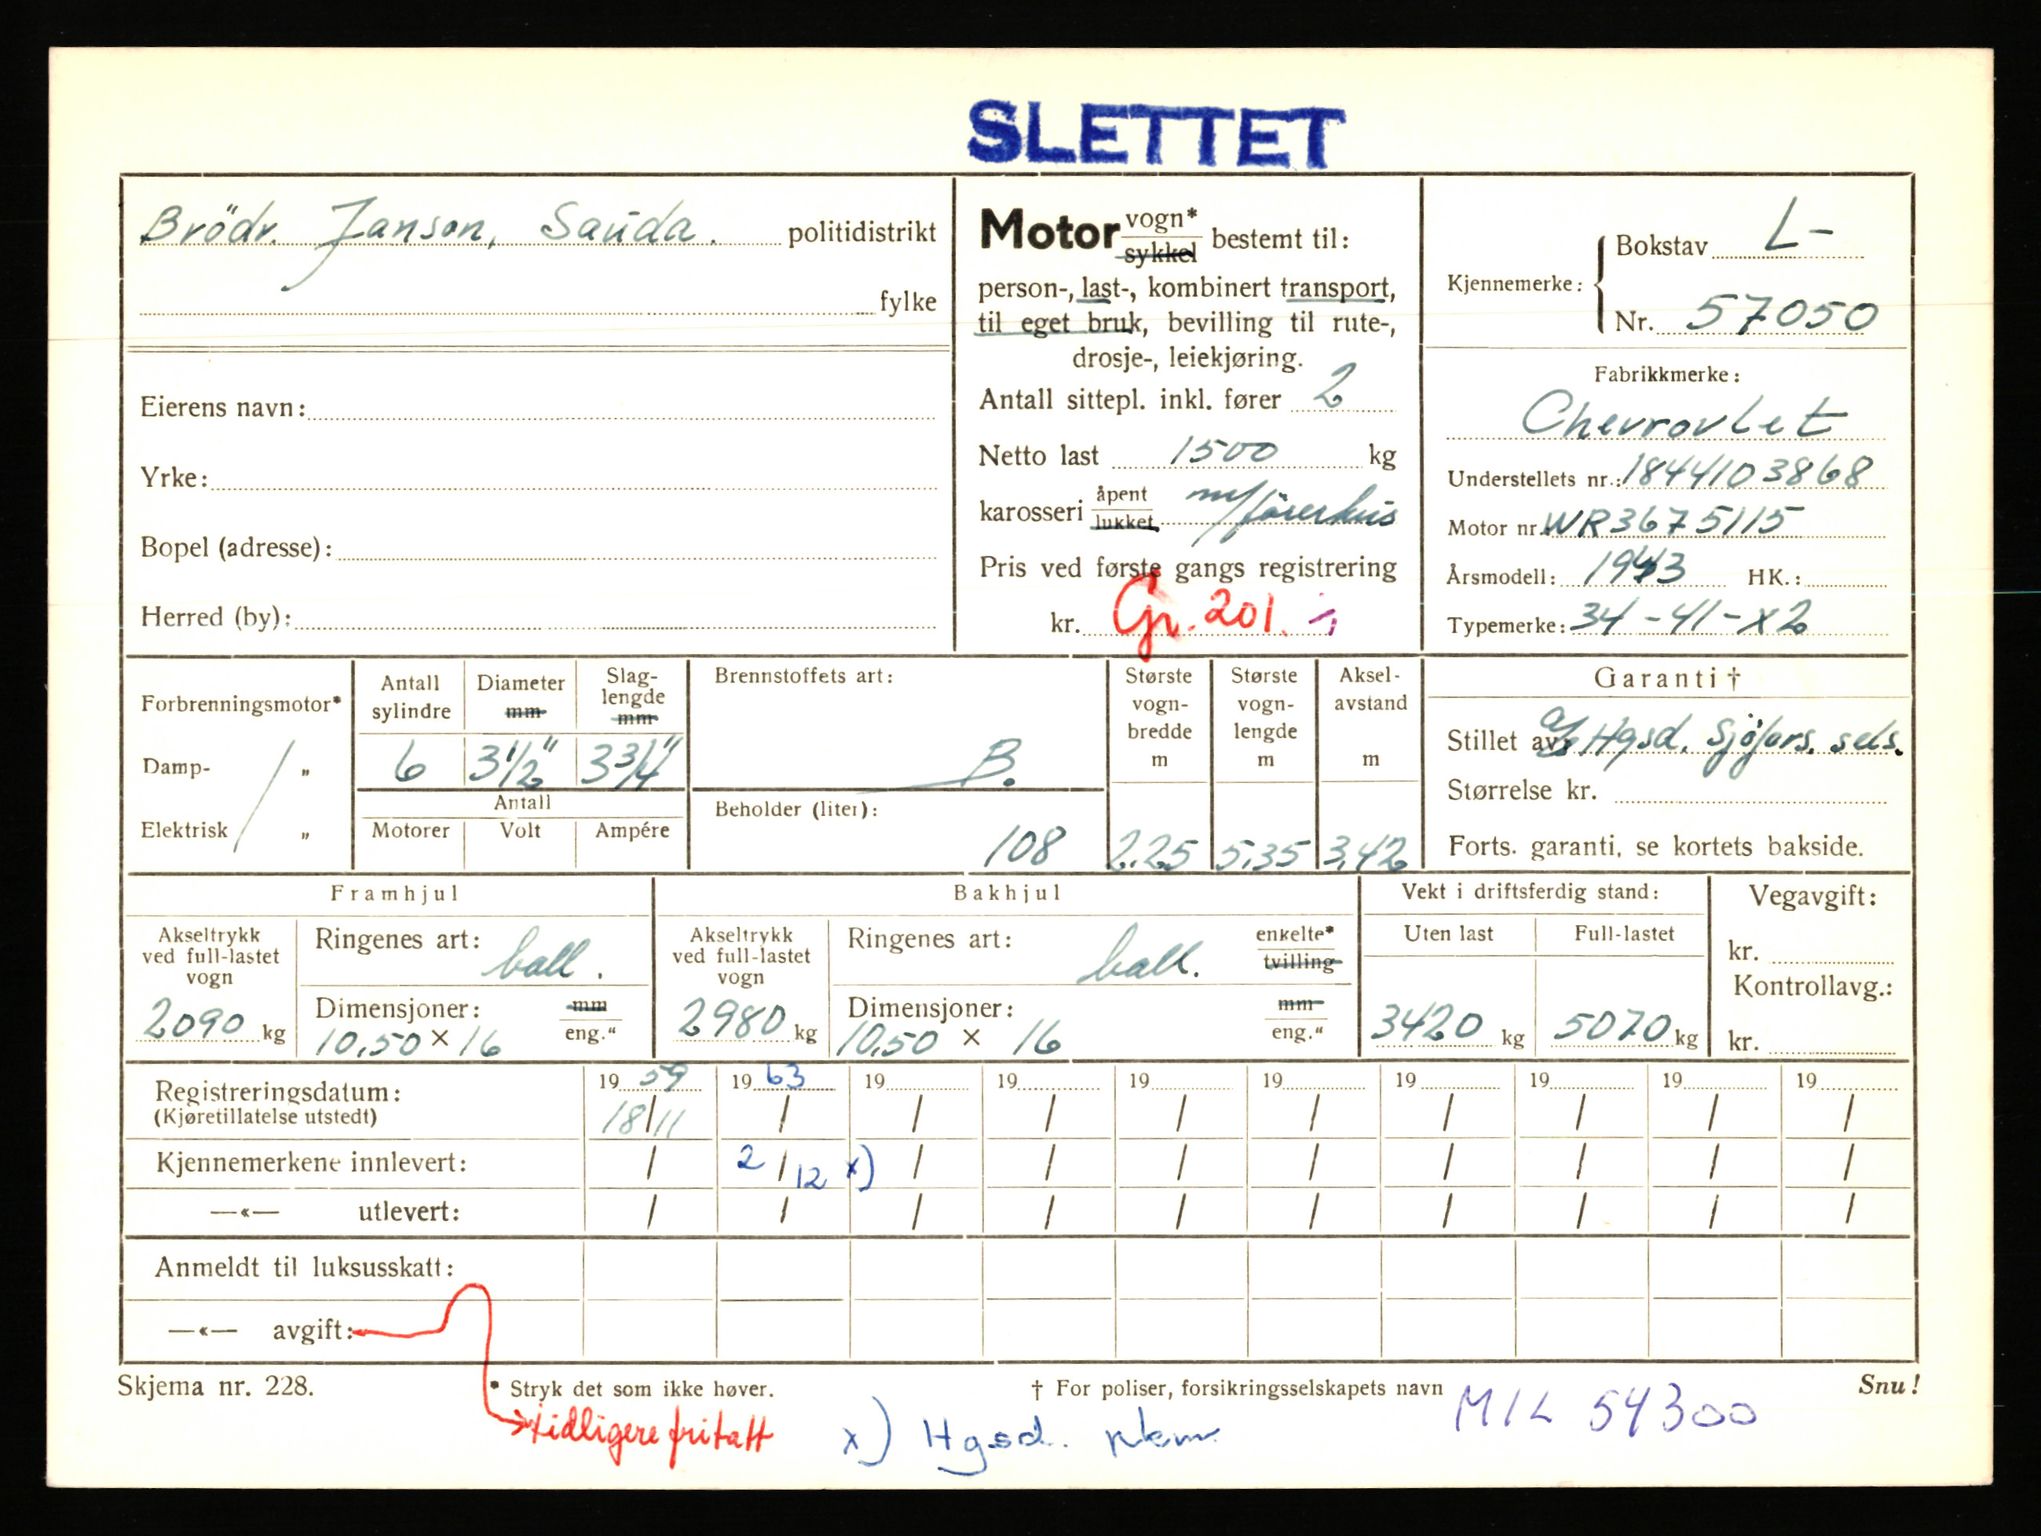 SLETTET
Brödr. Janson, Sauda. politidistrikt
fylke
Eierens navn:
Yrke:
Bopel (adresse):
Herred (by):
Motor vogn* sykkel bestemt til:
person-, last-, kombinert transport,
til eget bruk, bevilling til rute-,
drosje-, leiekjøring.
Antall sittepl. inkl. fører 2
Netto last 1500 kg
karosseri åpent lukket m/förerhus
Pris ved første gangs registrering
kr. Gr. 201.
Kjennemerke: Bokstav L-
Nr. 57050
Fabrikkmerke:
Chevrovlet
Understellets nr.: 1844103868
Motor nr. WR3675115
Årsmodell: 1943 HK.:
Typemerke: 34-41-X2
Forbrenningsmotor*
Damp- "
Elektrisk "
Antall sylindre
6
Diameter mm
3 1/2"
Slaglengde mm
3 3/4"
Antall
Motorer Volt Ampére
Brennstoffets art:
B.
Beholder (liter):
108
Største vognbredde m
2.25
Største vognlengde m
5,35
Akselavstand m
3,42
Garanti †
Stillet av Hgsd. Sjöfors. sels.
Størrelse kr.
Forts. garanti, se kortets bakside.
Framhjul
Akseltrykk ved full-lastet vogn
2090 kg
Ringenes art: ball.
Dimensjoner: mm
10,50 x 16 eng."
Bakhjul
Akseltrykk ved full-lastet vogn
2980 kg
Ringenes art: ball. enkelte* tvilling
Dimensjoner: mm
10,50 x 16 eng."
Vekt i driftsferdig stand:
Uten last Full-lastet
3420 kg 5070 kg
Vegavgift:
kr.
Kontrollavg.:
kr.
Registreringsdatum: 19 59 19 63 19 19 19 19 19 19 19 19
(Kjøretillatelse utstedt) 18/11 / / / / / / / / /
Kjennemerkene innlevert: / 2/12 x) / / / / / / / /
—«— utlevert: / / / / / / / / / /
Anmeldt til luksusskatt:
—«— avgift:
Skjema nr. 228. * Stryk det som ikke høver. † For poliser, forsikringsselskapets navn Snu!
tidligere fritatt x) Hgsd. MIL 54300